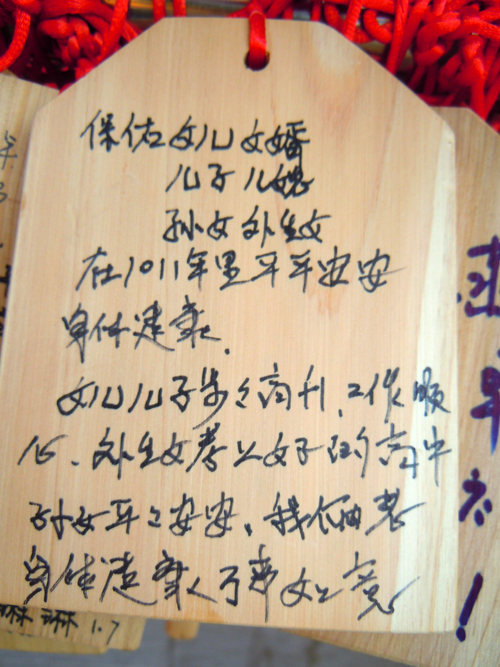 保佑女儿女婿
儿子儿媳
孙女外生女
在2011年里平平安安
身体建康.
女儿儿子步々高升、工作顺
心、外生女考上好的高中
孙女平々安安、我俩老
身体建康、万事如意
琳 1.7
早
!